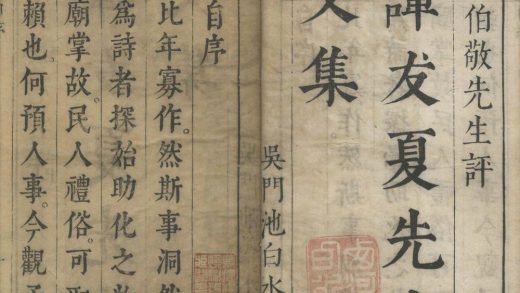 伯敬先生評
譚友夏先
文集
吳門池白水
自序
比年寡作。然斯事洞然
爲詩者探始助化之
廟掌故。民人禮俗。可
賴也。何預人事。今觀